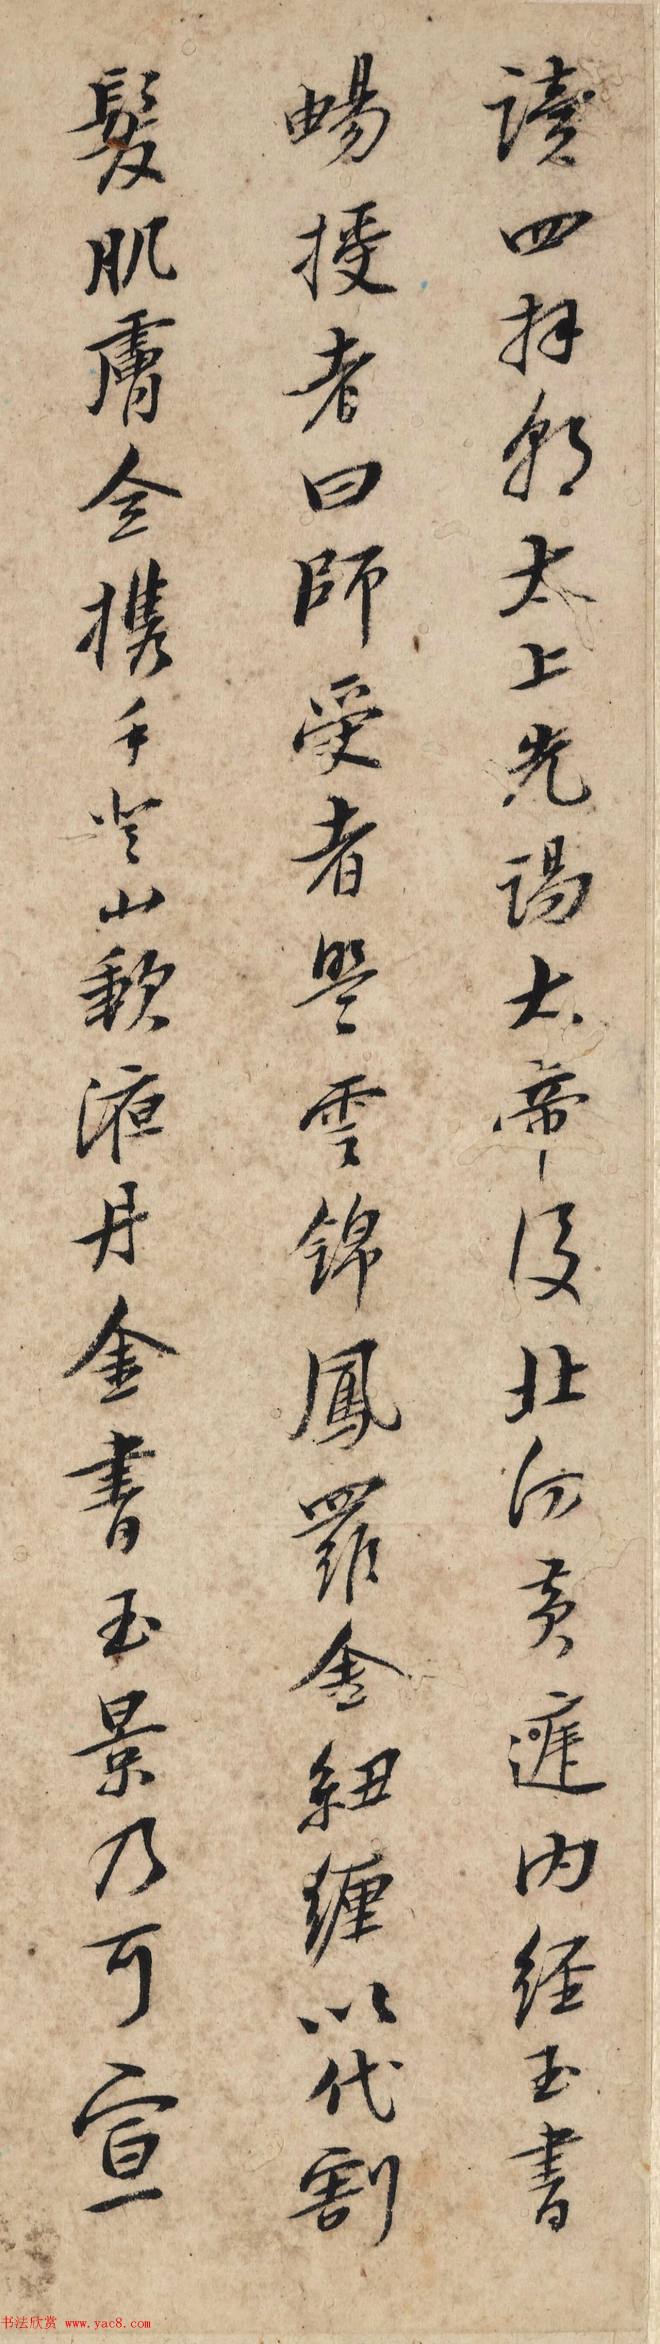 讀四拜朝太上先謁太帝後北向黃庭內經玉書
暢授者曰師受者盟雲錦鳳羅金紐纏以代割
髮肌膚全攜手登山歃液丹金書玉景乃可宣
书法欣赏 www.yac8.com